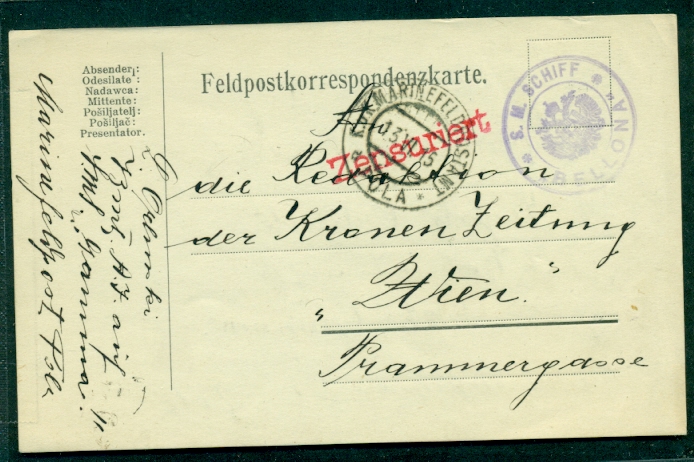 Absender:
Odesílatel:
Nadawca:
Mittente:
Pošiljatelj:
Pošiljač:
Presentator.
Feldpostkorrespondenzkarte.
S. M. SCHIFF
BELLONA
K.u.K. MARINEFELDPOSTAMT
POLA
Zensuriert
An
die Redaktion
der Kronen Zeitung
„Wien."
Prammergasse
auf
"Gamma."
Marinefeldpost Pola